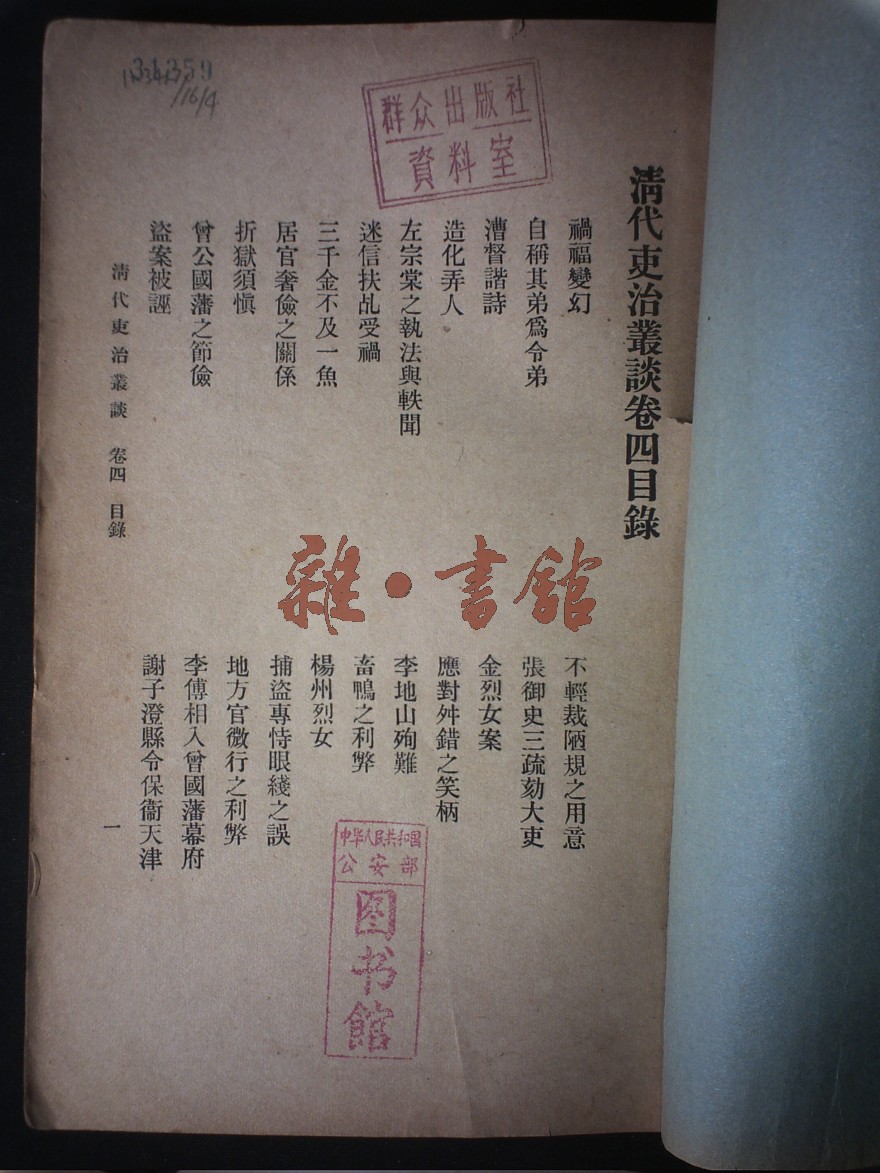 清代吏治叢談卷四目錄
禍福變幻
不輕裁陋規之用意
自稱其弟爲令弟
張御史三疏劾大吏
漕督諧詩
金烈女案
造化弄人
應對舛錯之笑柄
左宗棠之執法與軼聞
李地山殉難
迷信扶乩受禍
畜鴨之利弊
三千金不及一魚
楊州烈女
居官奢儉之關係
捕盜專恃眼綫之誤
折獄須慎
地方官微行之利弊
曾公國藩之節儉
李傅相入曾國藩幕府
盜案被誣
謝子澄縣令保衞天津
清代吏治叢談 卷四 目錄
一
群众出版社
資料室
雜·書館
中华人民共和国
公安部
图书馆
116/4